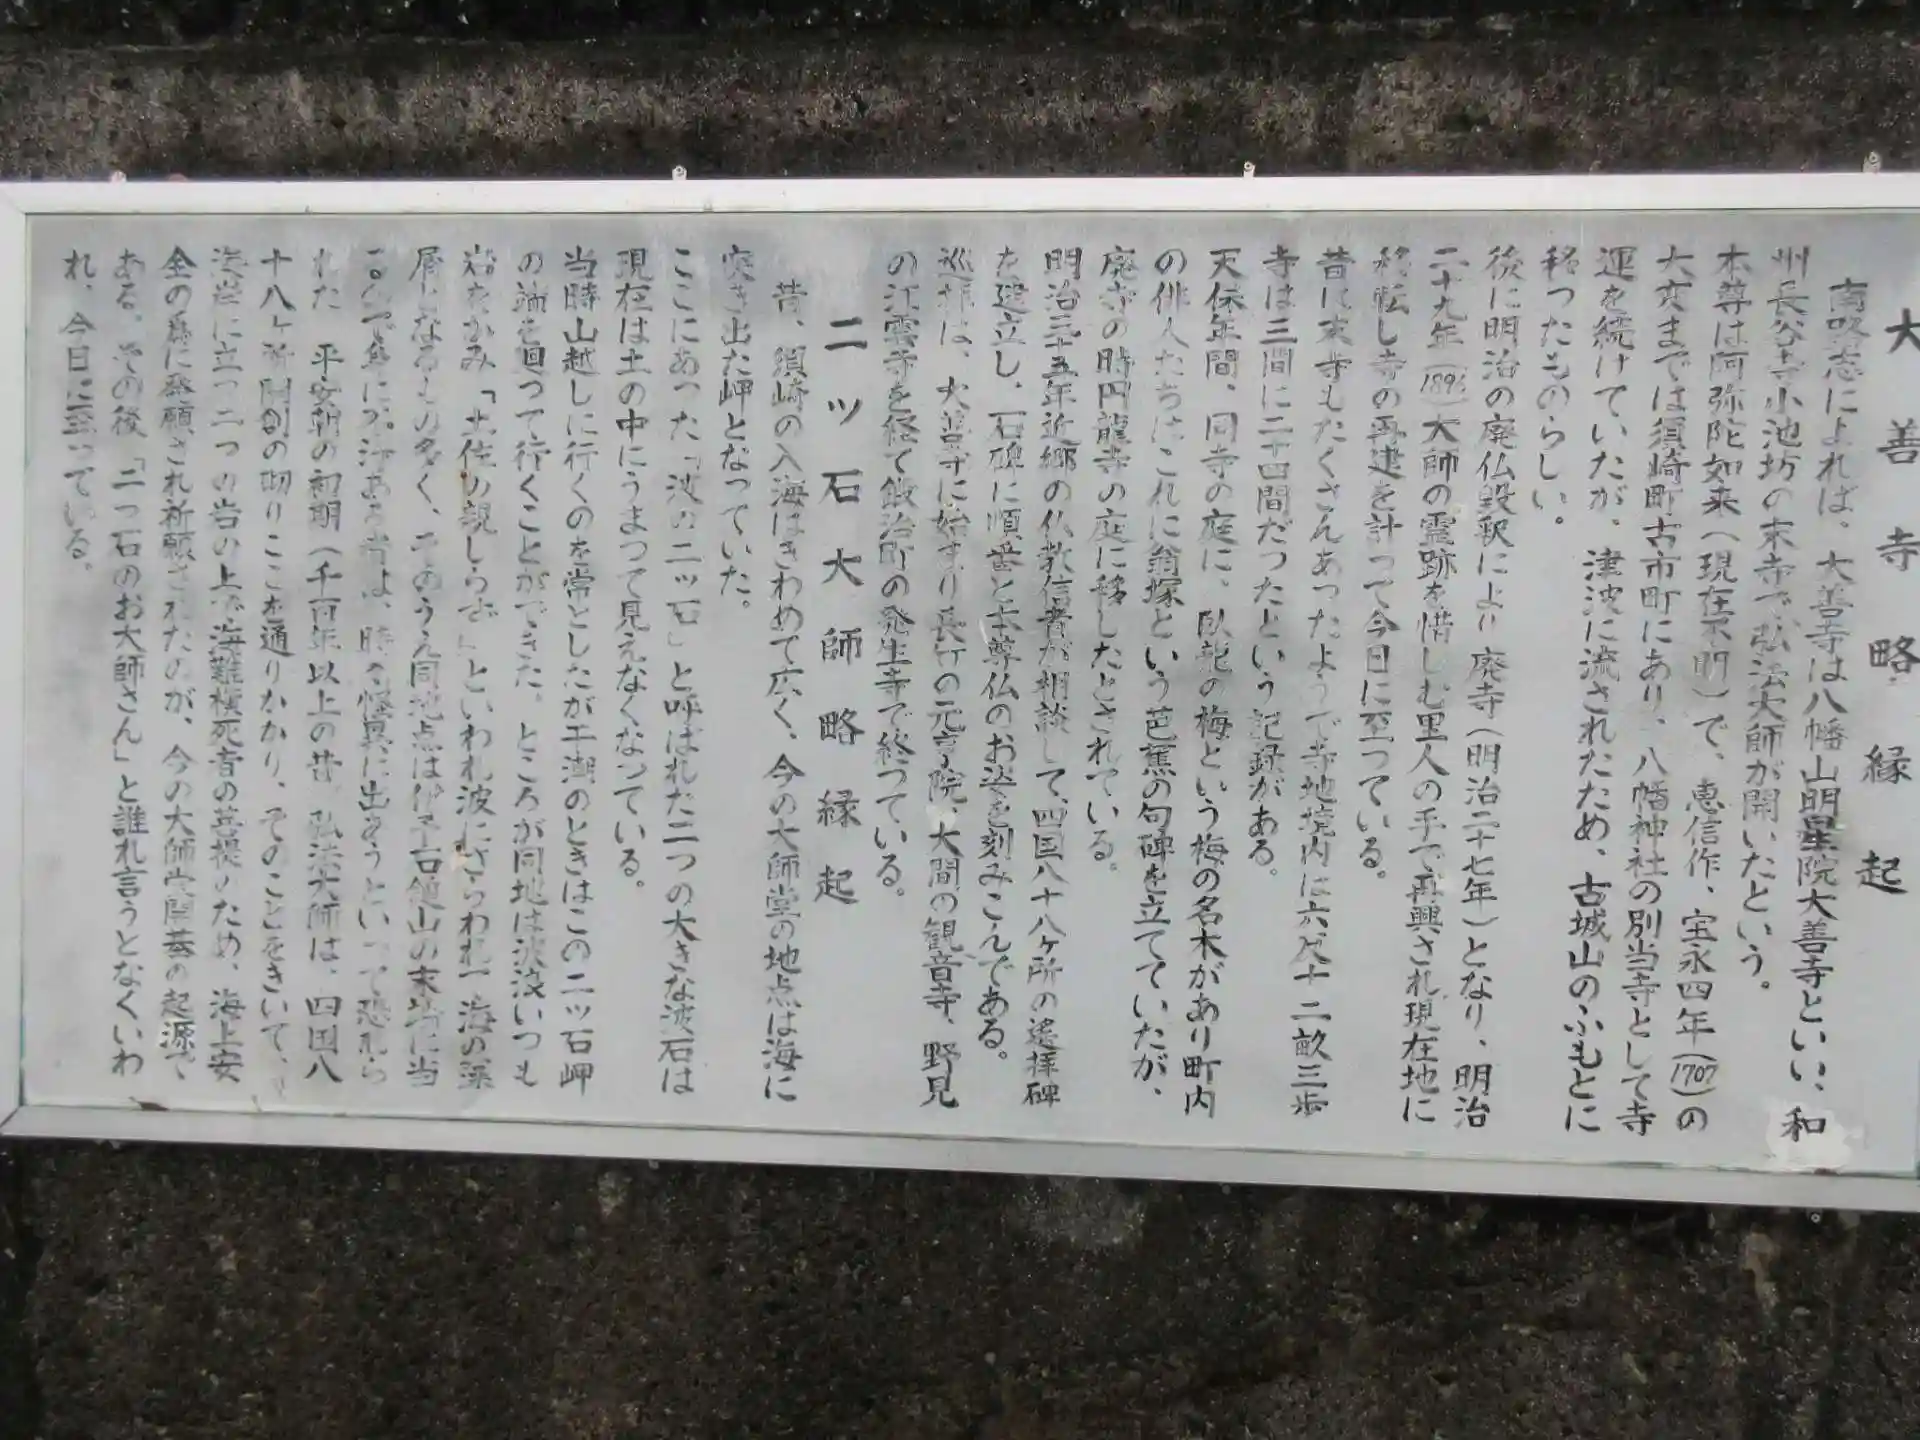 大善寺略縁起
南路志によれば、大善寺は八幡山明星院大善寺といい、和
州長谷寺小池坊の末寺で弘法大師が開いたという。
本尊は阿弥陀如来(現在不明)で、恵信作、宝永四年(1707)の
大変までは須崎町古市町にあり、八幡神社の別当寺として寺
運を続けていたが、津波に流されたため、古城山のふもとに
移つたものらしい。
後に明治の廃仏毀釈により廃寺(明治二十七年)となり、明治
二十九年(1896)大師の霊跡を惜しむ里人の手で再興され現在地に
移転し寺の再建を計つて今日に至つている。
昔は末寺もたくさんあつたようで寺地境内に六反十二畝三歩
寺は三間に二十四間だつたという記録がある。
天保年間、同寺の庭に、臥龍の梅という梅の名木があり町内
の俳人たちはこれに翁塚という芭蕉の句碑を立てていたが、
廃寺の時円龍寺の庭に移したとされている。
明治三十五年近郷の仏教信者が相談して、四国八十八ヶ所の遙拝碑
を建立し、石碑に順番と本尊仏のお姿を刻みこんである。
巡拝は、大善寺に始まり長竹の元亨院、大間の観音寺、野見
の江雲寺を経て鍛治町の発生寺で終つている。
二ッ石大師略縁起
昔、須崎の入海はきわめて広く、今の大師堂の地点は海に
突き出た岬となっていた。
ここにあった「波の二ッ石」と呼ばれた二つの大きな波石は
現在は土の中にうまつて見えなくなっている。
当時山越しに行くのを常としたが干潮のときはこの二ッ石岬
の端を廻つて行くことができた。ところが同地は波浪いつも
岩をかみ「土佐の親しらず」といわれ波にさらわれ海の藻
屑となるもの多く、そのうえ同地点は石鎚山の末端に当
るので魚に 汚ある者は、時々怪異に出あうといって恐れら
れた 平安朝の初期(千百年以上の昔、弘法大師は、四国八
十八ヶ所開創の砌りここを通りかかり、そのことをきいて、
海岸に立つ二つの岩の上で海難横死者の菩提のため、海上安
全の為に発願され祈願されたのが、今の大師堂開基の起源で
ある。その後「二つ石のお大師さん」と誰れ言うとなくいわ
れ、今日に至っている。